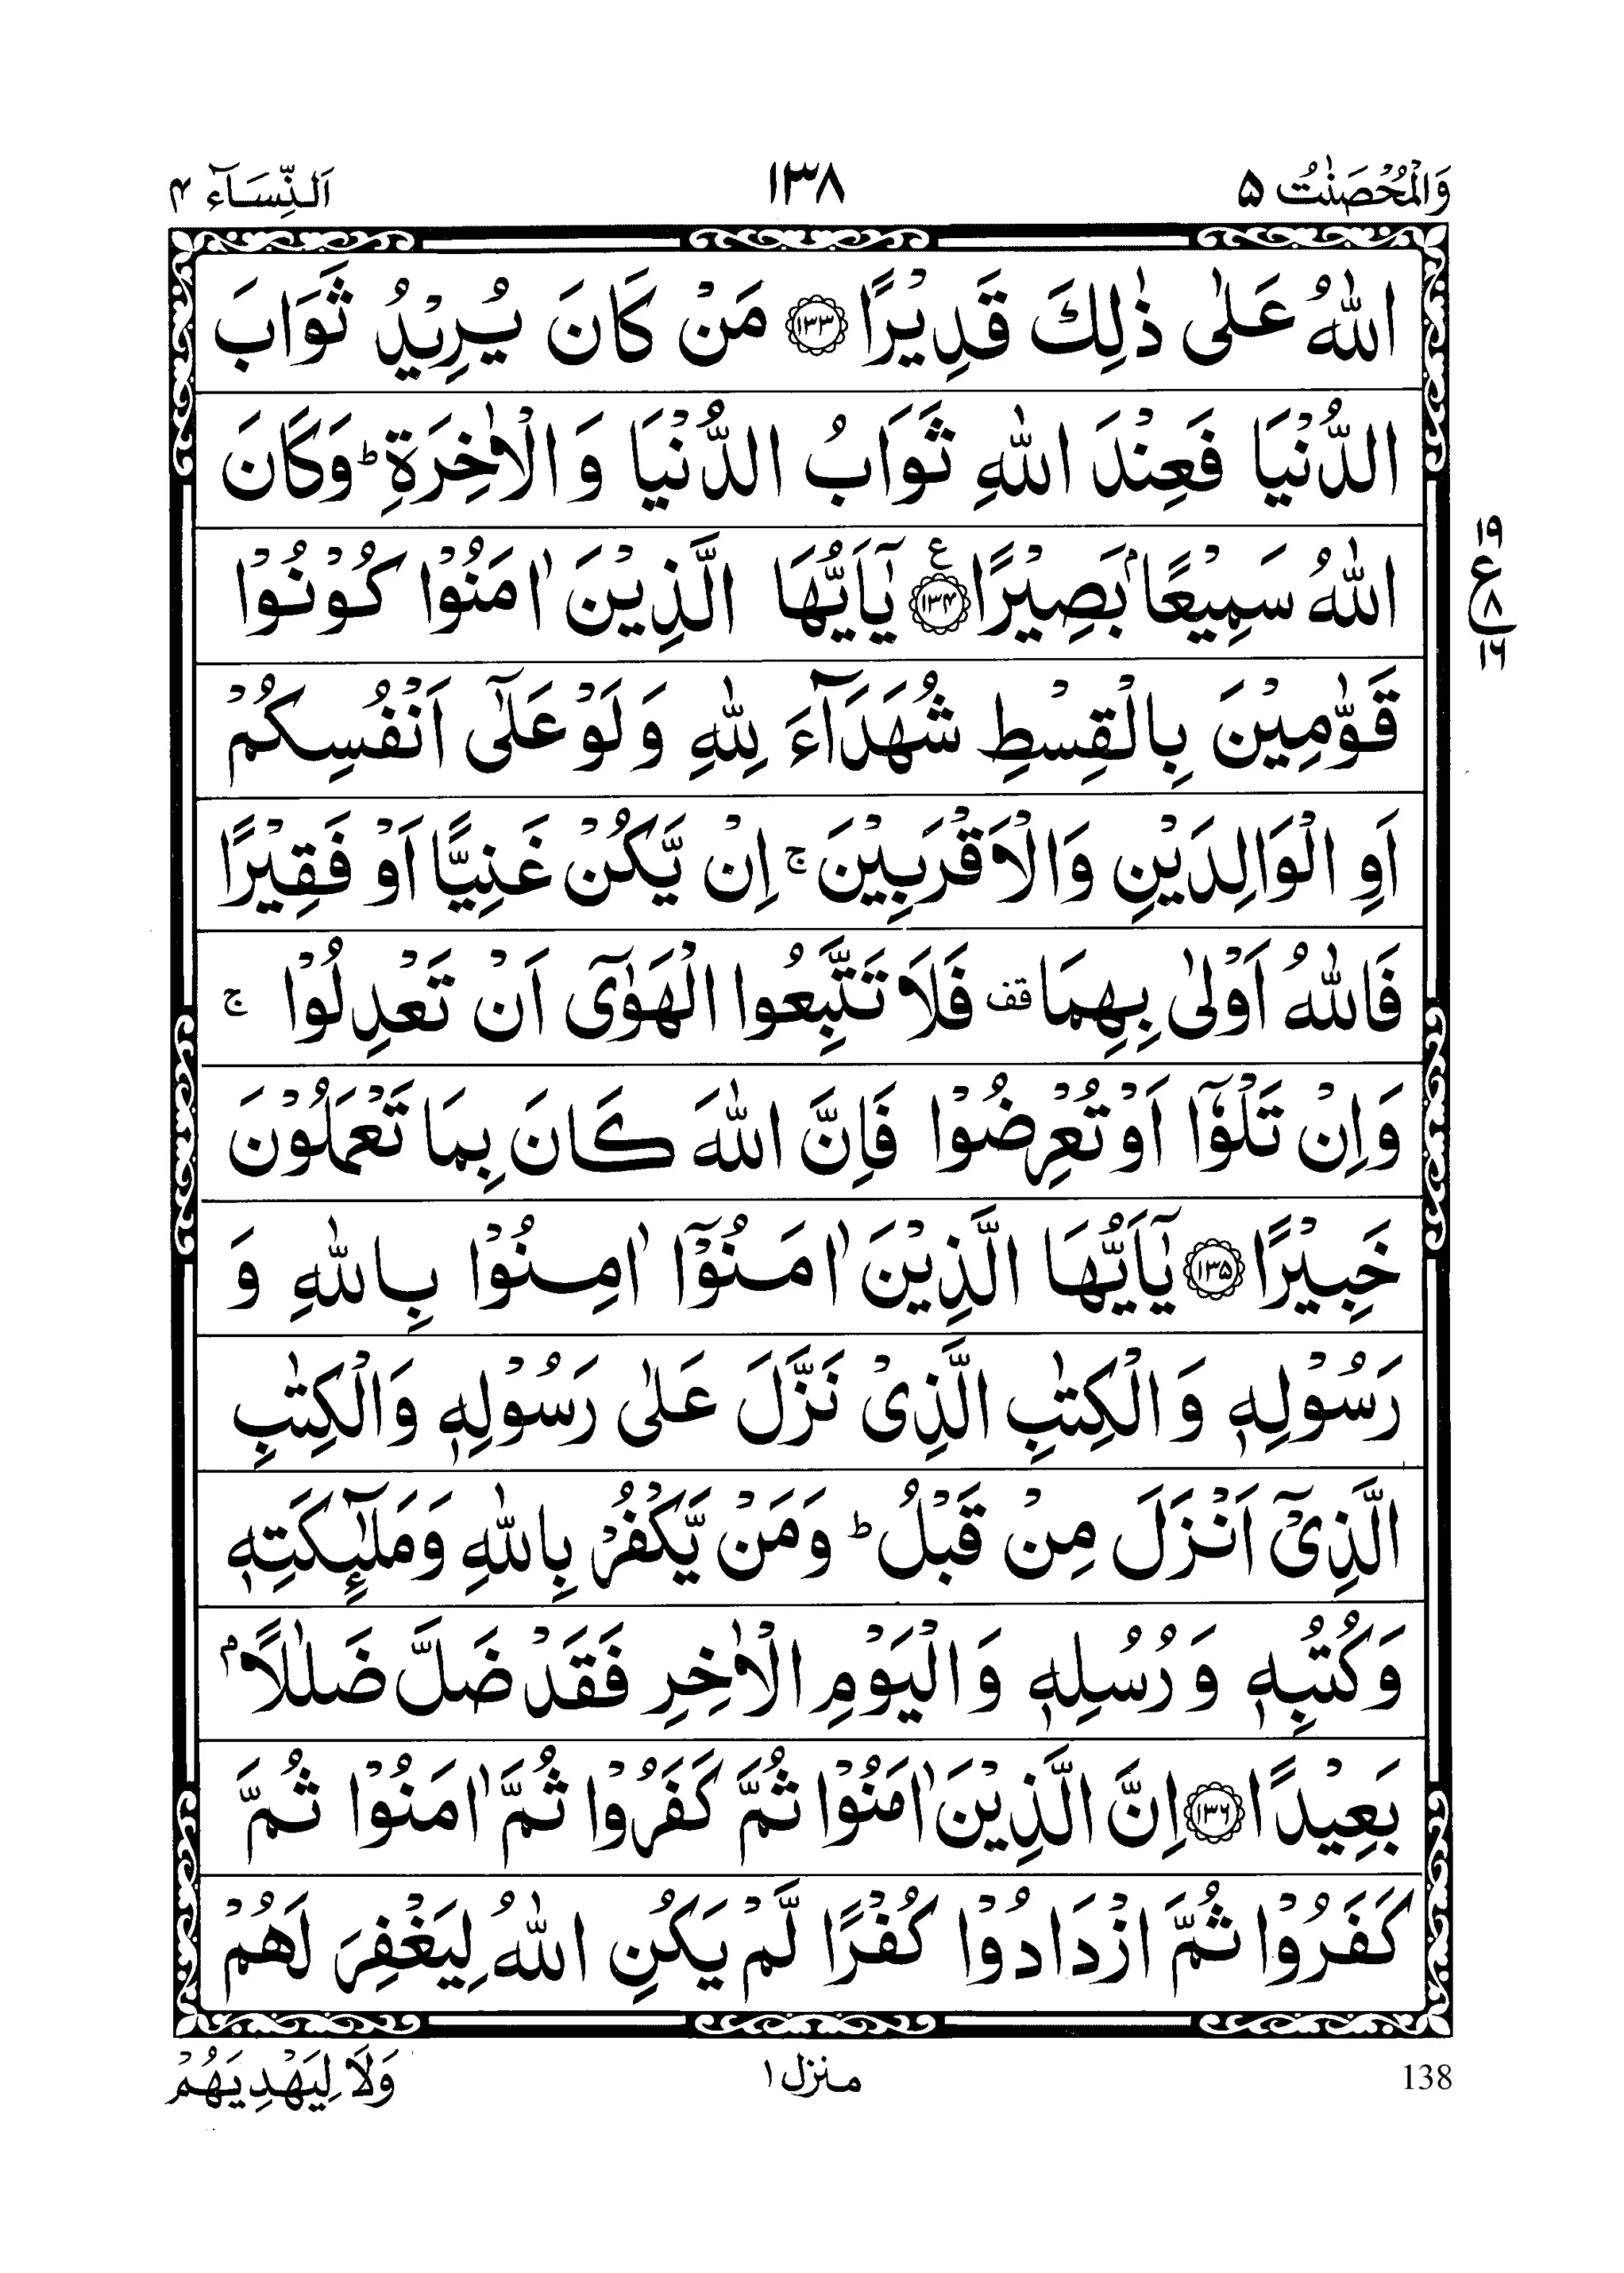 وَالْمُحْصَنٰتُ ۵ ۱۳۸ اَلنِّسَآء ۴
اللّٰهُ عَلٰى ذٰلِكَ قَدِيْرًا ﴿۱۳۳﴾ مَنْ كَانَ يُرِيْدُ ثَوَابَ
الدُّنْيَا فَعِنْدَ اللّٰهِ ثَوَابُ الدُّنْيَا وَ الْاٰخِرَةِ ؕ وَكَانَ
اللّٰهُ سَمِيْعًۢا بَصِيْرًا ﴿۱۳۴﴾ ع يٰۤاَيُّهَا الَّذِيْنَ اٰمَنُوْا كُوْنُوْا
۱۹
ع ۸
۱۶
قَوّٰمِيْنَ بِالْقِسْطِ شُهَدَآءَ لِلّٰهِ وَ لَوْ عَلٰۤى اَنْفُسِكُمْ
اَوِ الْوَالِدَيْنِ وَالْاَقْرَبِيْنَ ۚ اِنْ يَّكُنْ غَنِيًّا اَوْ فَقِيْرًا
فَاللّٰهُ اَوْلٰى بِهِمَا قف فَلَا تَتَّبِعُوا الْهَوٰۤى اَنْ تَعْدِلُوْا ۚ
وَاِنْ تَلْوٗۤا اَوْ تُعْرِضُوْا فَاِنَّ اللّٰهَ كَانَ بِمَا تَعْمَلُوْنَ
خَبِيْرًا ﴿۱۳۵﴾ يٰۤاَيُّهَا الَّذِيْنَ اٰمَنُوْۤا اٰمِنُوْا بِاللّٰهِ وَ
رَسُوْلِهٖ وَ الْكِتٰبِ الَّذِىْ نَزَّلَ عَلٰى رَسُوْلِهٖ وَالْكِتٰبِ
الَّذِىْۤ اَنْزَلَ مِنْ قَبْلُ ؕ وَمَنْ يَّكْفُرْ بِاللّٰهِ وَمَلٰٓئِكَتِهٖ
وَكُتُبِهٖ وَ رُسُلِهٖ وَ الْيَوْمِ الْاٰخِرِ فَقَدْ ضَلَّ ضَلٰلًاۢ
بَعِيْدًا ﴿۱۳۶﴾ اِنَّ الَّذِيْنَ اٰمَنُوْا ثُمَّ كَفَرُوْا ثُمَّ اٰمَنُوْا ثُمَّ
كَفَرُوْا ثُمَّ ازْدَادُوْا كُفْرًا لَّمْ يَكُنِ اللّٰهُ لِيَغْفِرَ لَهُمْ
138 منزل ۱ وَلَا لِيَهْدِيَهُمْ